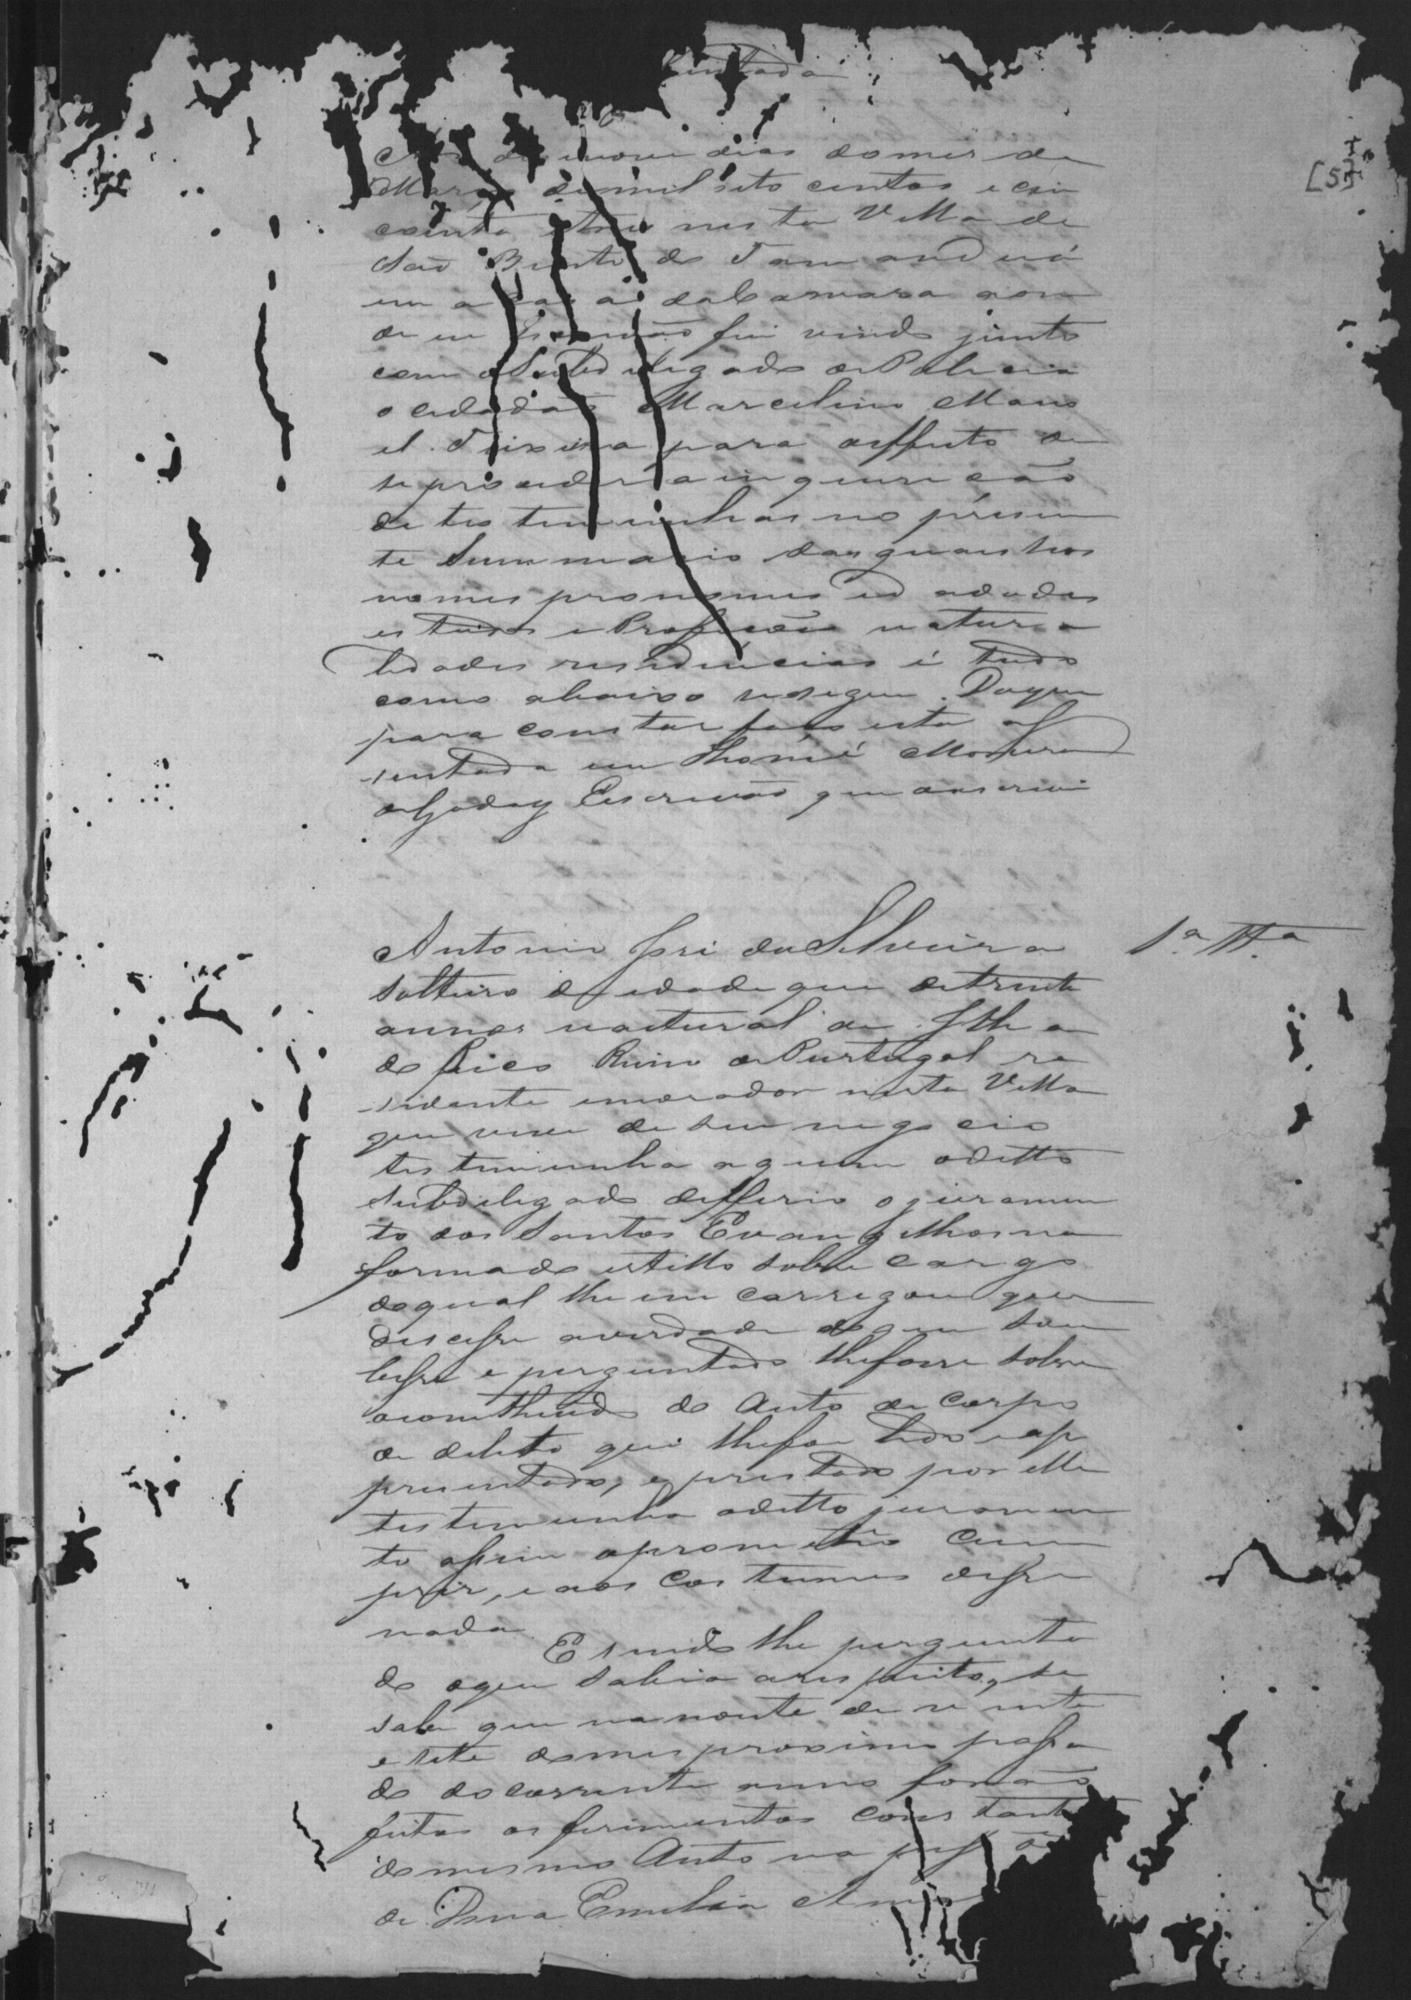 sentada
[5]
dias do mes de
Março de mil oito centos e cin
coenta e tres nesta Villa de
São Bento do Tamanduá
em a casa da Camara aon
de eu Escrivão fui vindo junto
com o Subdelegado de Policia
o cidadão Marcelino Mano
el Teixeira para o effeito de
se proceder a inquirição
de testemunhas no prezen
te Summario das quais seos
nomes pronomes idades
estados e Profição natura
lidades residencias é tudo
como abaixo se segue. Do que
para constar faço esta as
sentada eu Thomé Moreira
de Godoy Escrivão que o escrivi
Antonio José da Silveira 1.ª Tt.ª
solteiro de idade que de trinta
annos natural da Ilha
do Pico Reino de Portugal re
zidente e morador nesta Villa
que vive de seu negocio
testemunha a quem o ditto
subdelegado defferio o juramen
to dos Santos Evangelhos na
forma do estillo sobre cargo
do qual lhe encarregou que
dicesse a verdade do que sou
besse e perguntado lhe fosse sobre
o conthiudo do Auto de Corpo
de delito que lhe foi lido e ap
prezentado, e prestado por elle
testemunha o ditto juramen
to assim o prometeo cum
prir, e aos costumes disse
nada.
E sendo lhe pergunta
do o que sabia a respeito, se
sabe que na noute de vinte
e sete do mes proximo passa
do do corrente anno forão
feitos os ferimentos constantes
do mesmo Auto na pessoa
de Dona Emilia